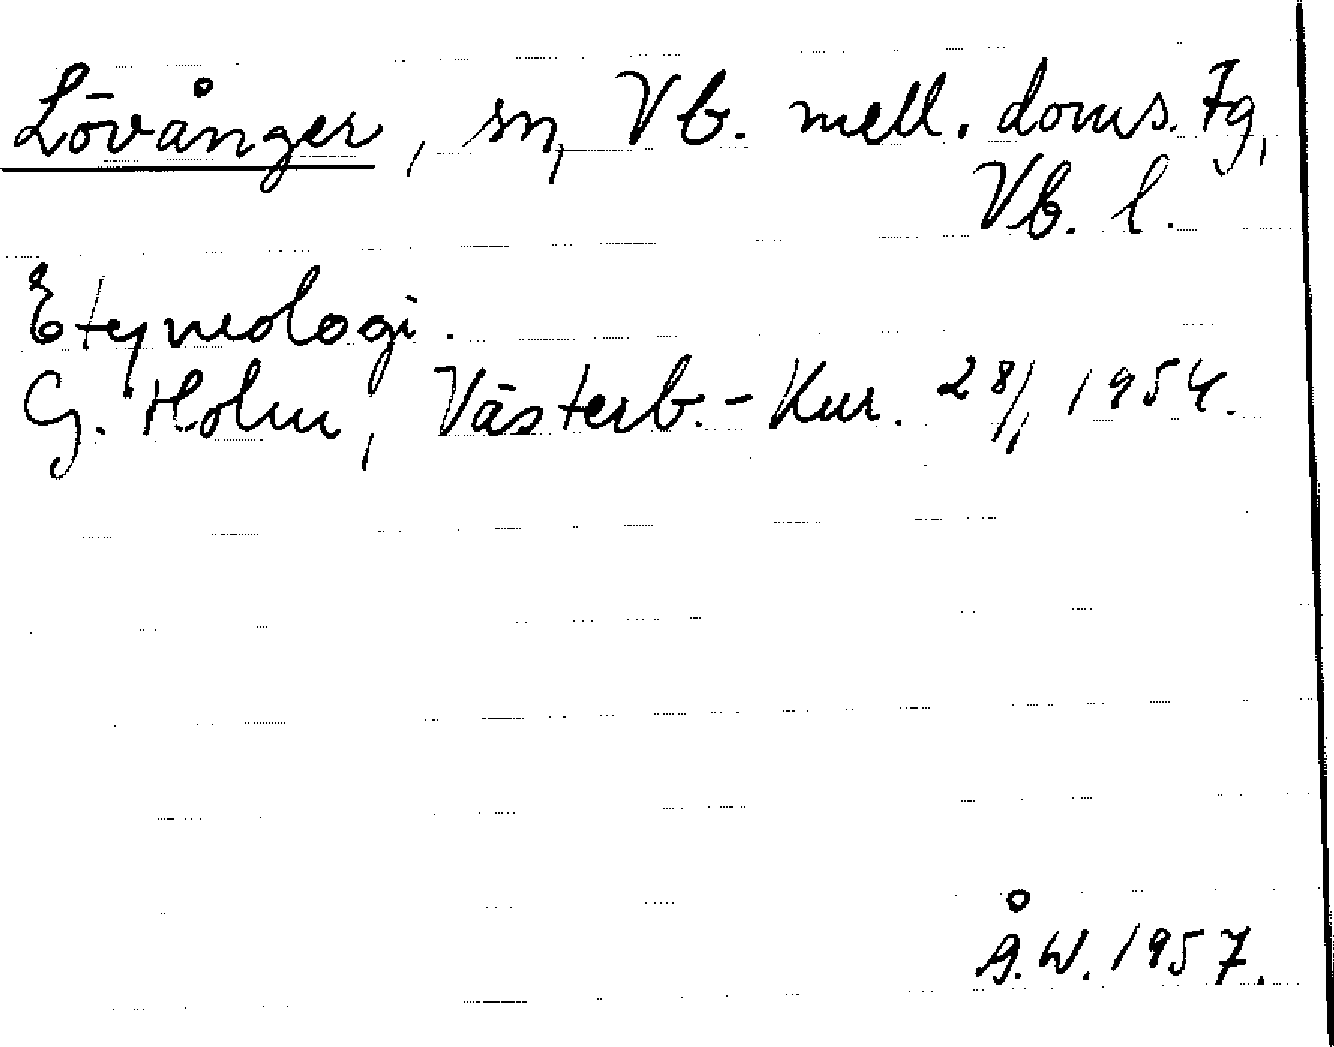 Lövånger, sn, Vb. mell. doms. Fg,
Vb. l.
Etymologi.
G. Holm, Västerb.-Kur. 28/1 1954.
Å.W. 1957.